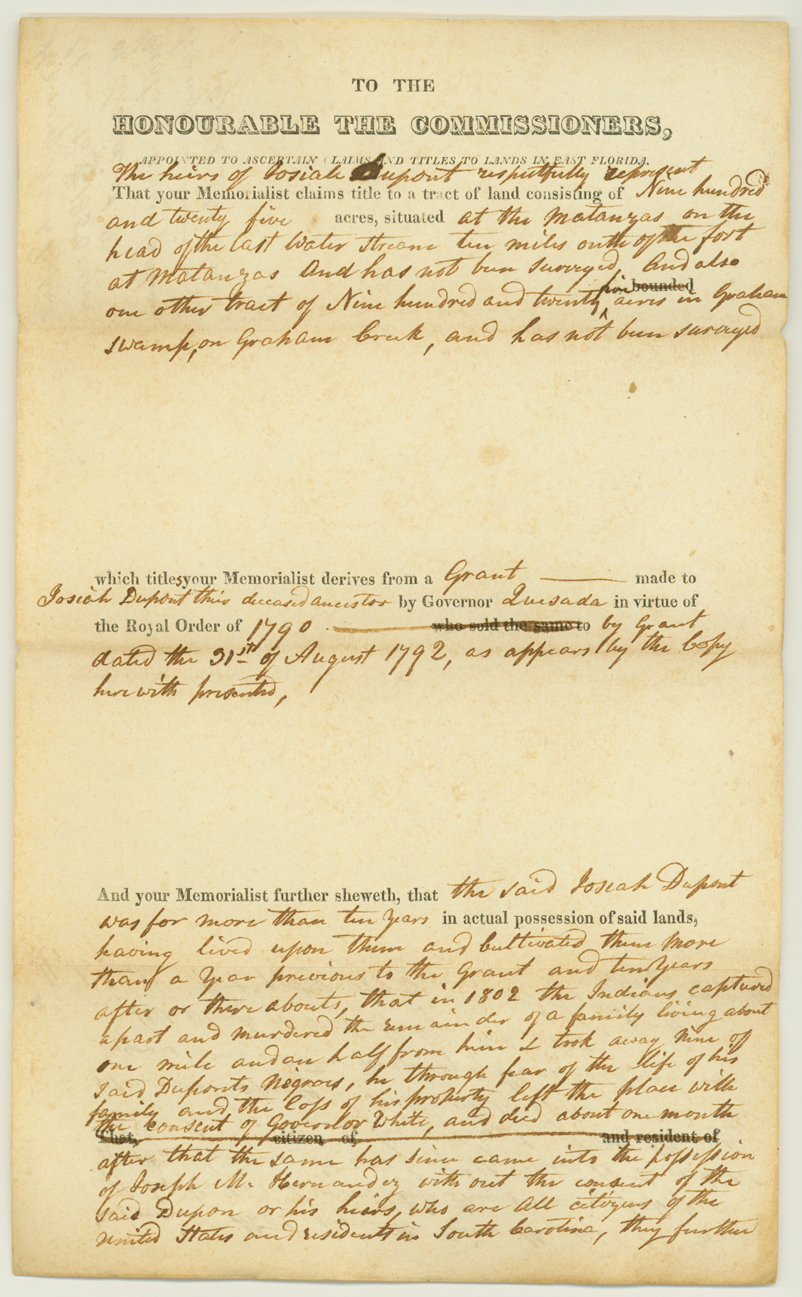 TO THE
HONOURABLE THE COMMISSIONERS,
APPOINTED TO ASCERTAIN CLAIMS AND TITLES TO LANDS IN EAST FLORIDA.
The heirs of Josiah Dupont respectfully represent
That your Memorialist claims title to a tract of land consisting of Nine hundred
and twenty five acres, situated at the Matanzas on the
head of the last Water Stream ten miles outh of the fort
at Matanzas And has not been Surveyed, And also
five bounded
one other tract of Nine hundred and twenty acres in Graham
swamp, on Graham Creek, and has not been surveyed
which titles your Memorialist derives from a Grant made to
Josiah Dupont their deceased ancestor by Governor Quesada in virtue of
the Royal Order of 1790 who sold the same to by Grant
dated the 31st of August 1792, as appears by the Copy
here with presented,
And your Memorialist further sheweth, that the said Josiah Dupont
was for more than ten years in actual possession of said lands,
having lived upon them and Cultivated them More
than a Year previous to the Grant and ten Years
after or there abouts, that in 1802 the Indians captured
apart and murdered the remainder of a family living about
one mile and an half from him & took away Nine of
said Duponts Negroes, he through fear of the life of his
family and the loss of his property left the place with
the consent of Governor White, and died about one month
That, citizen of and resident of
after that the same has since came into the possession
of Joseph M. Hernandez with out the consent of the
said Dupon or his heirs, who are All citizens of the
United States and residents in South Carolina, they further